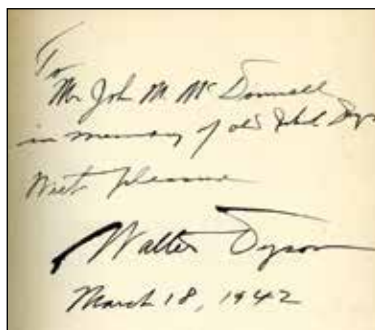 To
Mr John M McDonnell
in memory of old
pleasure
Walter Dyson
March 18, 1942